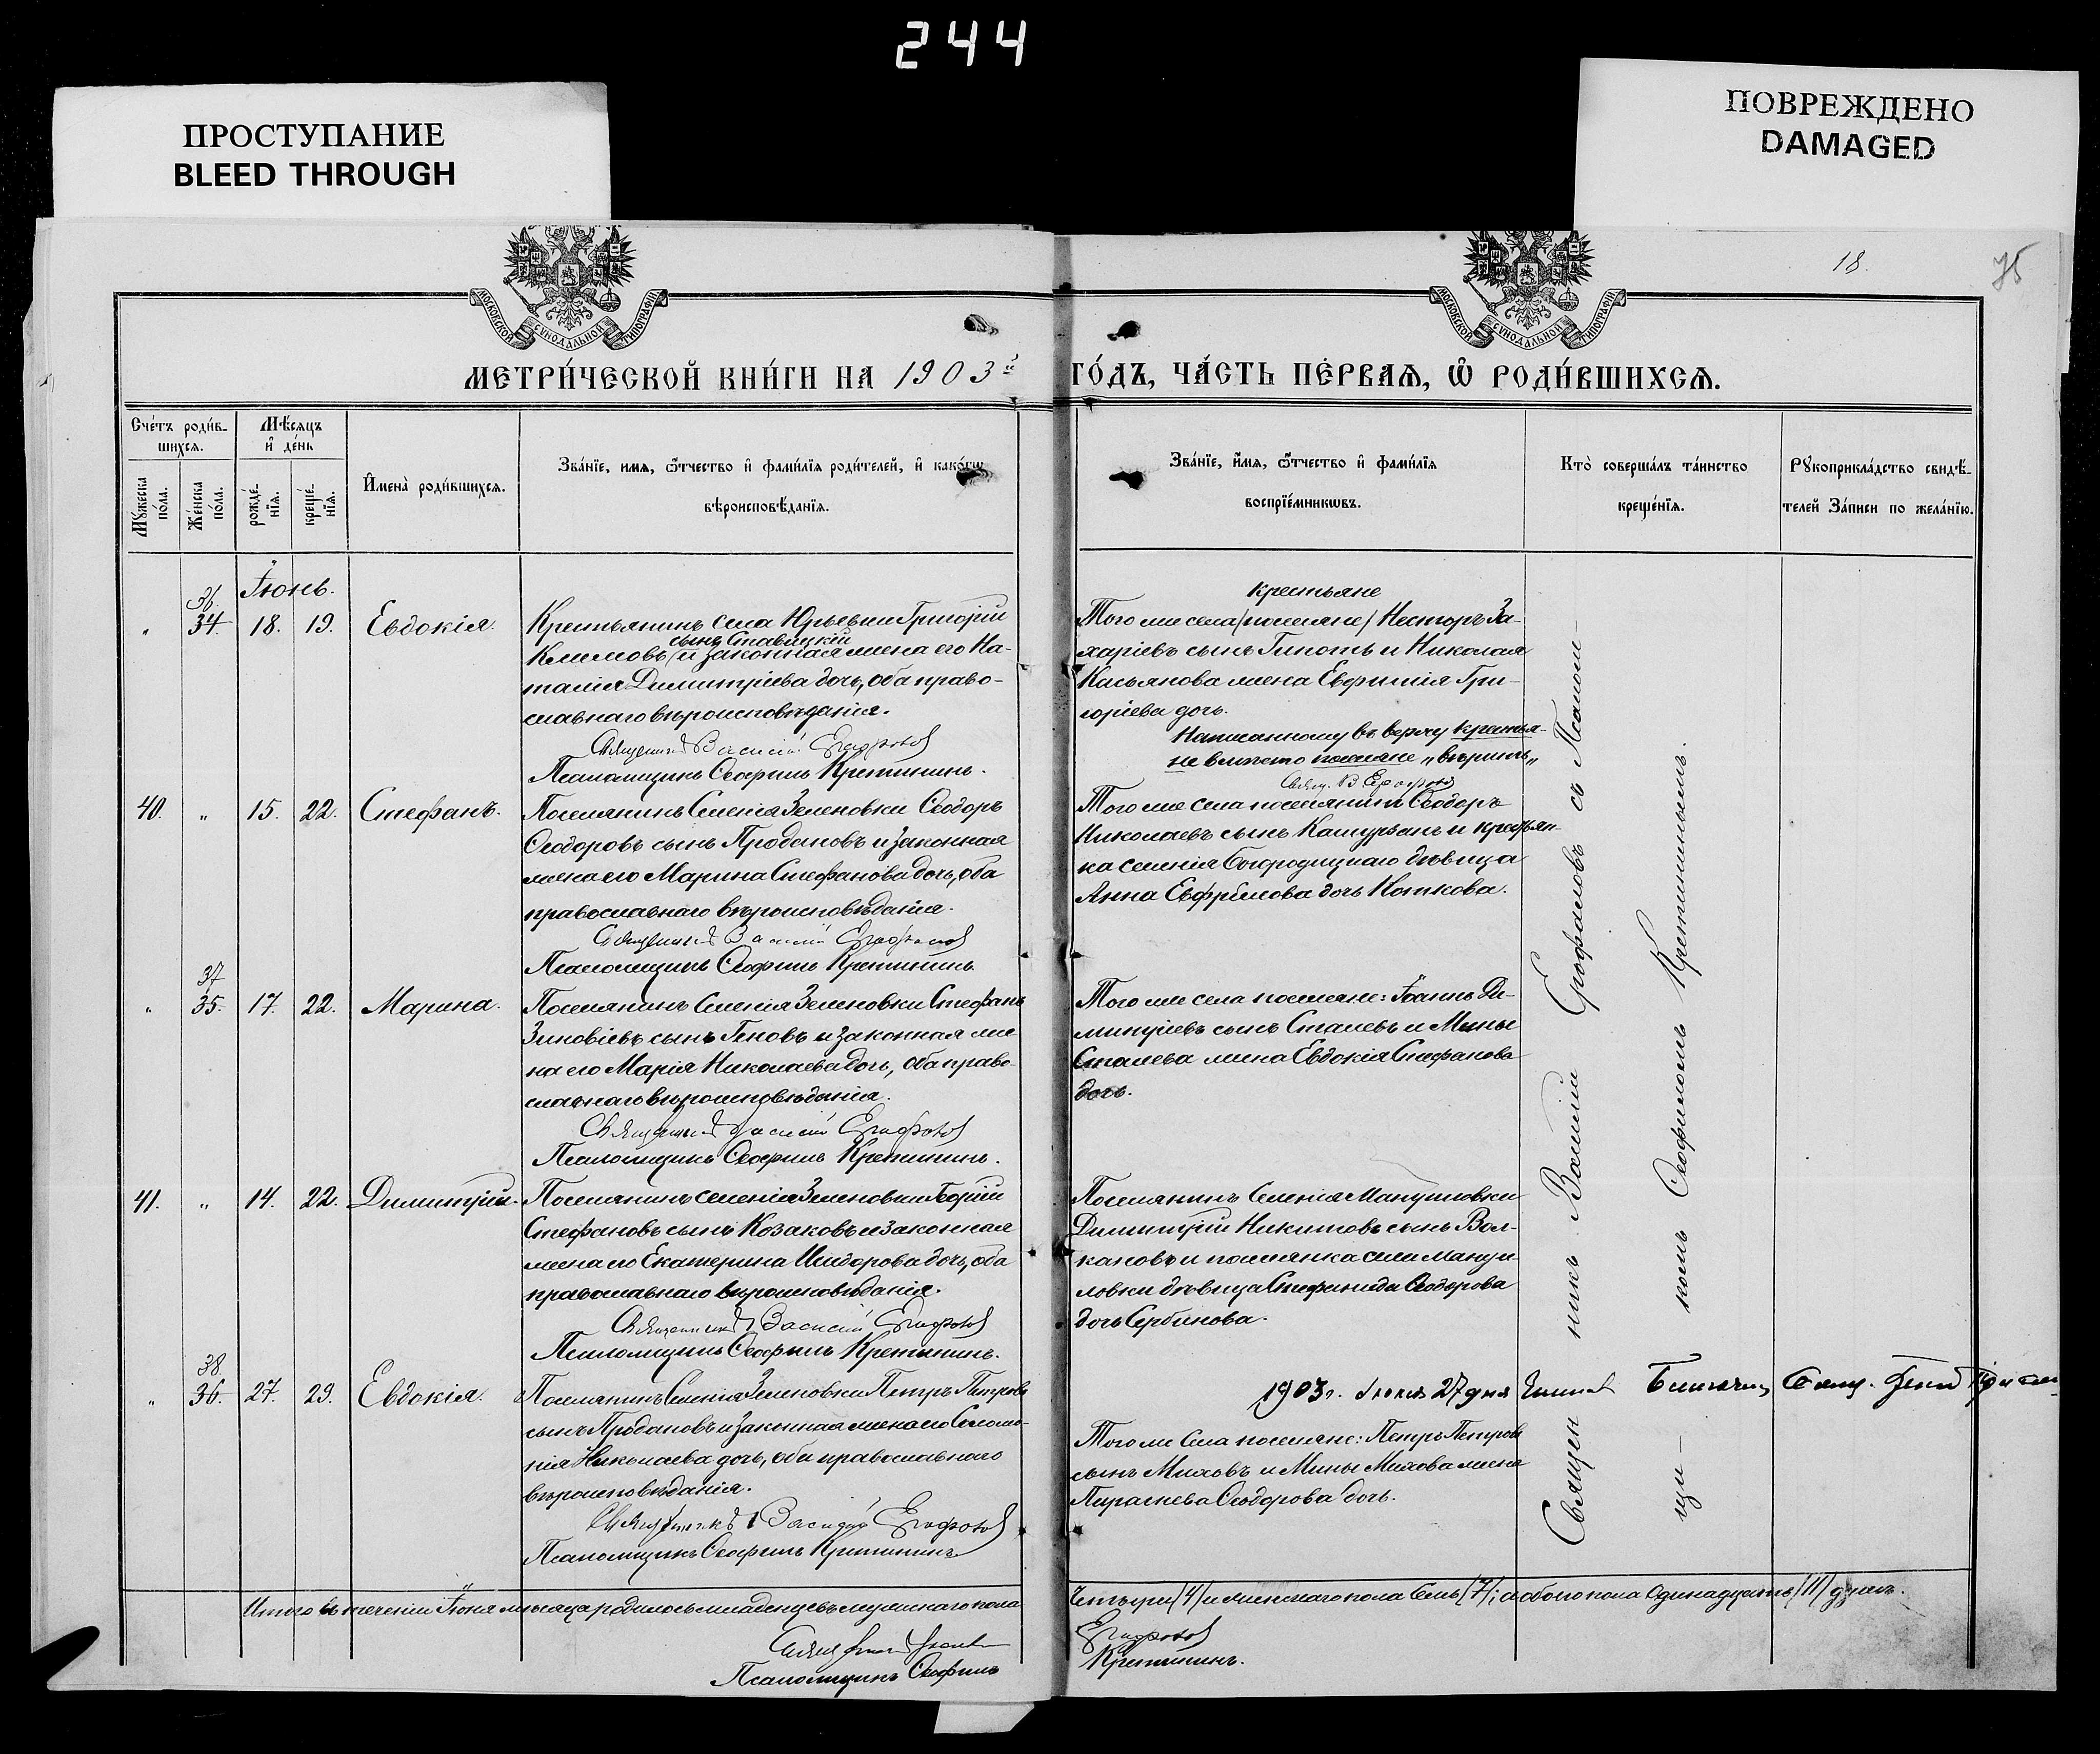 244
ПРОСТУПАНИЕ
BLEED THROUGH
ПОВРЕЖДЕНО
DAMAGED
МОСКОВСКОЙ СѴНОДАЛЬНОЙ ТИПОГРАФІИ
МОСКОВСКОЙ СѴНОДАЛЬНОЙ ТИПОГРАФІИ
18.
75
МЕТРИ́ЧЕСКОЙ КНИ́ГИ НА 1903й
ГО́ДЪ, ЧА́СТЬ ПЕ́РВАѦ, Ѡ҆ РОДИ́ВШИХСѦ.
Сче́тъ роди́в-
шихсѧ.
Мѣ́сѧцъ
и҆ де́нь
Мꙋ́жеска по́ла.
Же́нска по́ла.
рожде́-нїѧ.
креще́-нїѧ.
И҆мена̀ роди́вшихсѧ.
Зва́нїе, имѧ, ѿтчество и҆ фами́лїѧ роди́телей, и҆ како́гѡ
вѣроисповѣ́данїѧ.
Зва́нїе, и҆́мѧ, ѿтчество и҆ фами́лїѧ
воспрїе́мникѡвъ.
Кто̀ соверша́лъ та́инство
креще́нїѧ.
Рꙋкоприкла́дство свидѣ́-
телей за́писи по жела́нїю.
Іюнь.
36.
„ 34. 18. 19. Евдокія.
Крестьянинъ села Юрьевки Григорій
сынъ Ставицкій
Климовъ / и законная жена его На-
талія Димитріева дочь, оба право-
славнаго вѣроисповѣданія.
Священникъ Василій Ерофаловъ
Псаломщикъ Ѳеофилъ Кретининъ.
крестьяне
Того же села /поселяне/ Несторъ За-
харіевъ сынъ Гипотъ и Николая
Касьянова жена Евфимія Гри-
горіева дочь.
Написанному въ верху крестья-
не вмѣсто поселяне „вѣрить„
Свящ. В. Ерофаловъ
40. „ 15. 22. Стефанъ.
Поселянинъ Селенія Зеленовки Ѳеодоръ
Ѳеодоровъ сынъ Продановъ и законная
жена его Марина Стефанова дочь, оба
православнаго вѣроисповѣданія.
Священникъ Василій Ерофаловъ
Псаломщикъ Ѳеофилъ Кретининъ
Того же села поселянинъ Ѳеодоръ
Николаевъ сынъ Кашурянъ и крестьян-
ка селенія Богородицкаго дѣвица
Анна Евфремова дочь Ноткова.
37
„ 35. 17. 22. Марина.
Поселянинъ Селенія Зеленовки Стефанъ
Зиновіевъ сынъ Геновъ и законная же-
на его Марія Николаева дочь, оба право-
славнаго вѣроисповѣданія.
Священникъ Василій Ерофаловъ
Псаломщикъ Ѳеофилъ Кретининъ.
Того же села поселяне: Іоаннъ Ди-
митріевъ сынъ Сталевъ и Мины
Сталева жена Евдокія Стефанова
дочь.
41. „ 14. 22. Димитрій.
Поселянинъ селенія Зеленовки Георгій
Стефановъ сынъ Козаковъ и законная
жена его Екатерина Исидорова дочь, оба
православнаго вѣроисповѣданія.
Священникъ Василій Ерофаловъ
Псаломщикъ Ѳеофилъ Кретининъ.
Поселянинъ Селенія Мануиловки
Димитрій Никитовъ сынъ Вол-
кановъ и поселянка села Мануи-
ловки дѣвица Стефанида Ѳеодорова
дочь Сербинова.
38.
„ 36. 27. 29. Евдокія.
Поселянинъ Селенія Зеленовки Петръ Петровъ
сынъ Продановъ и законная жена его Соломо-
нія Николаева дочь, оба православнаго
вѣроисповѣданія.
Священникъ Василій Ерофаловъ
Псаломщикъ Ѳеофилъ Кретининъ
1903 г. Іюля 27 дня
Того же Села поселяне: Петръ Петровъ
сынъ Миховъ и Мины Михова жена
Параскева Ѳеодорова дочь.
Священникъ Василій Ерофаловъ съ Псалом-
щикомъ Ѳеофиломъ Кретининымъ.
Итого въ теченіи Іюня мѣсяца родилось младенцевъ мужскаго пола
четыре /4/ и женскаго пола семь /7/; а обоего пола одинадцать /11/ душъ.
Ерофаловъ
Псаломщикъ Ѳеофилъ
Кретининъ.